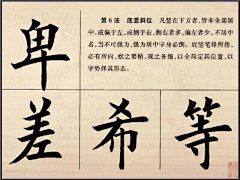 第6法 底竖斜位 凡竖在下方者，皆非全部居
中，或偏于左，或侧于右，侧右者多，偏左者少。不居中
者，当不可强为，强为居中字身必倒。底竖笔锋所络，
必有所向，察之要精，观之务细，以全局定其位置，以
字势择其形态。
卑
差希等